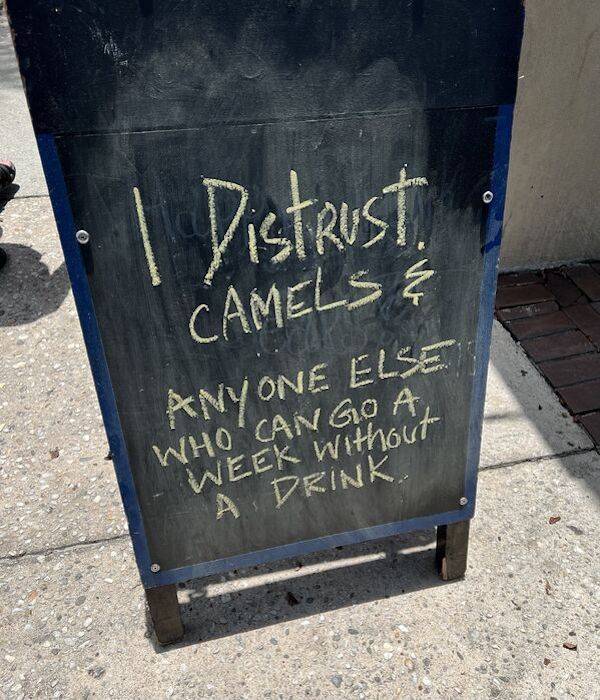 I DISTRUST
CAMELS &
ANYONE ELSE
WHO CAN GO A
WEEK WITHOUT
A DRINK.